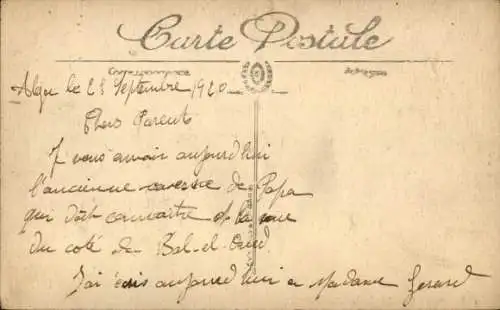 Carte Postale
Correspondance Adresse
Alger le 28 Septembre 1920
Chers Parents
J vous envoie aujourd'hui
l'ancienne caserne de Papa
que doit connaitre et la vue
du coté de Bab-el-Oued.
J'ai écris aujourd'hui a Madame Gerard